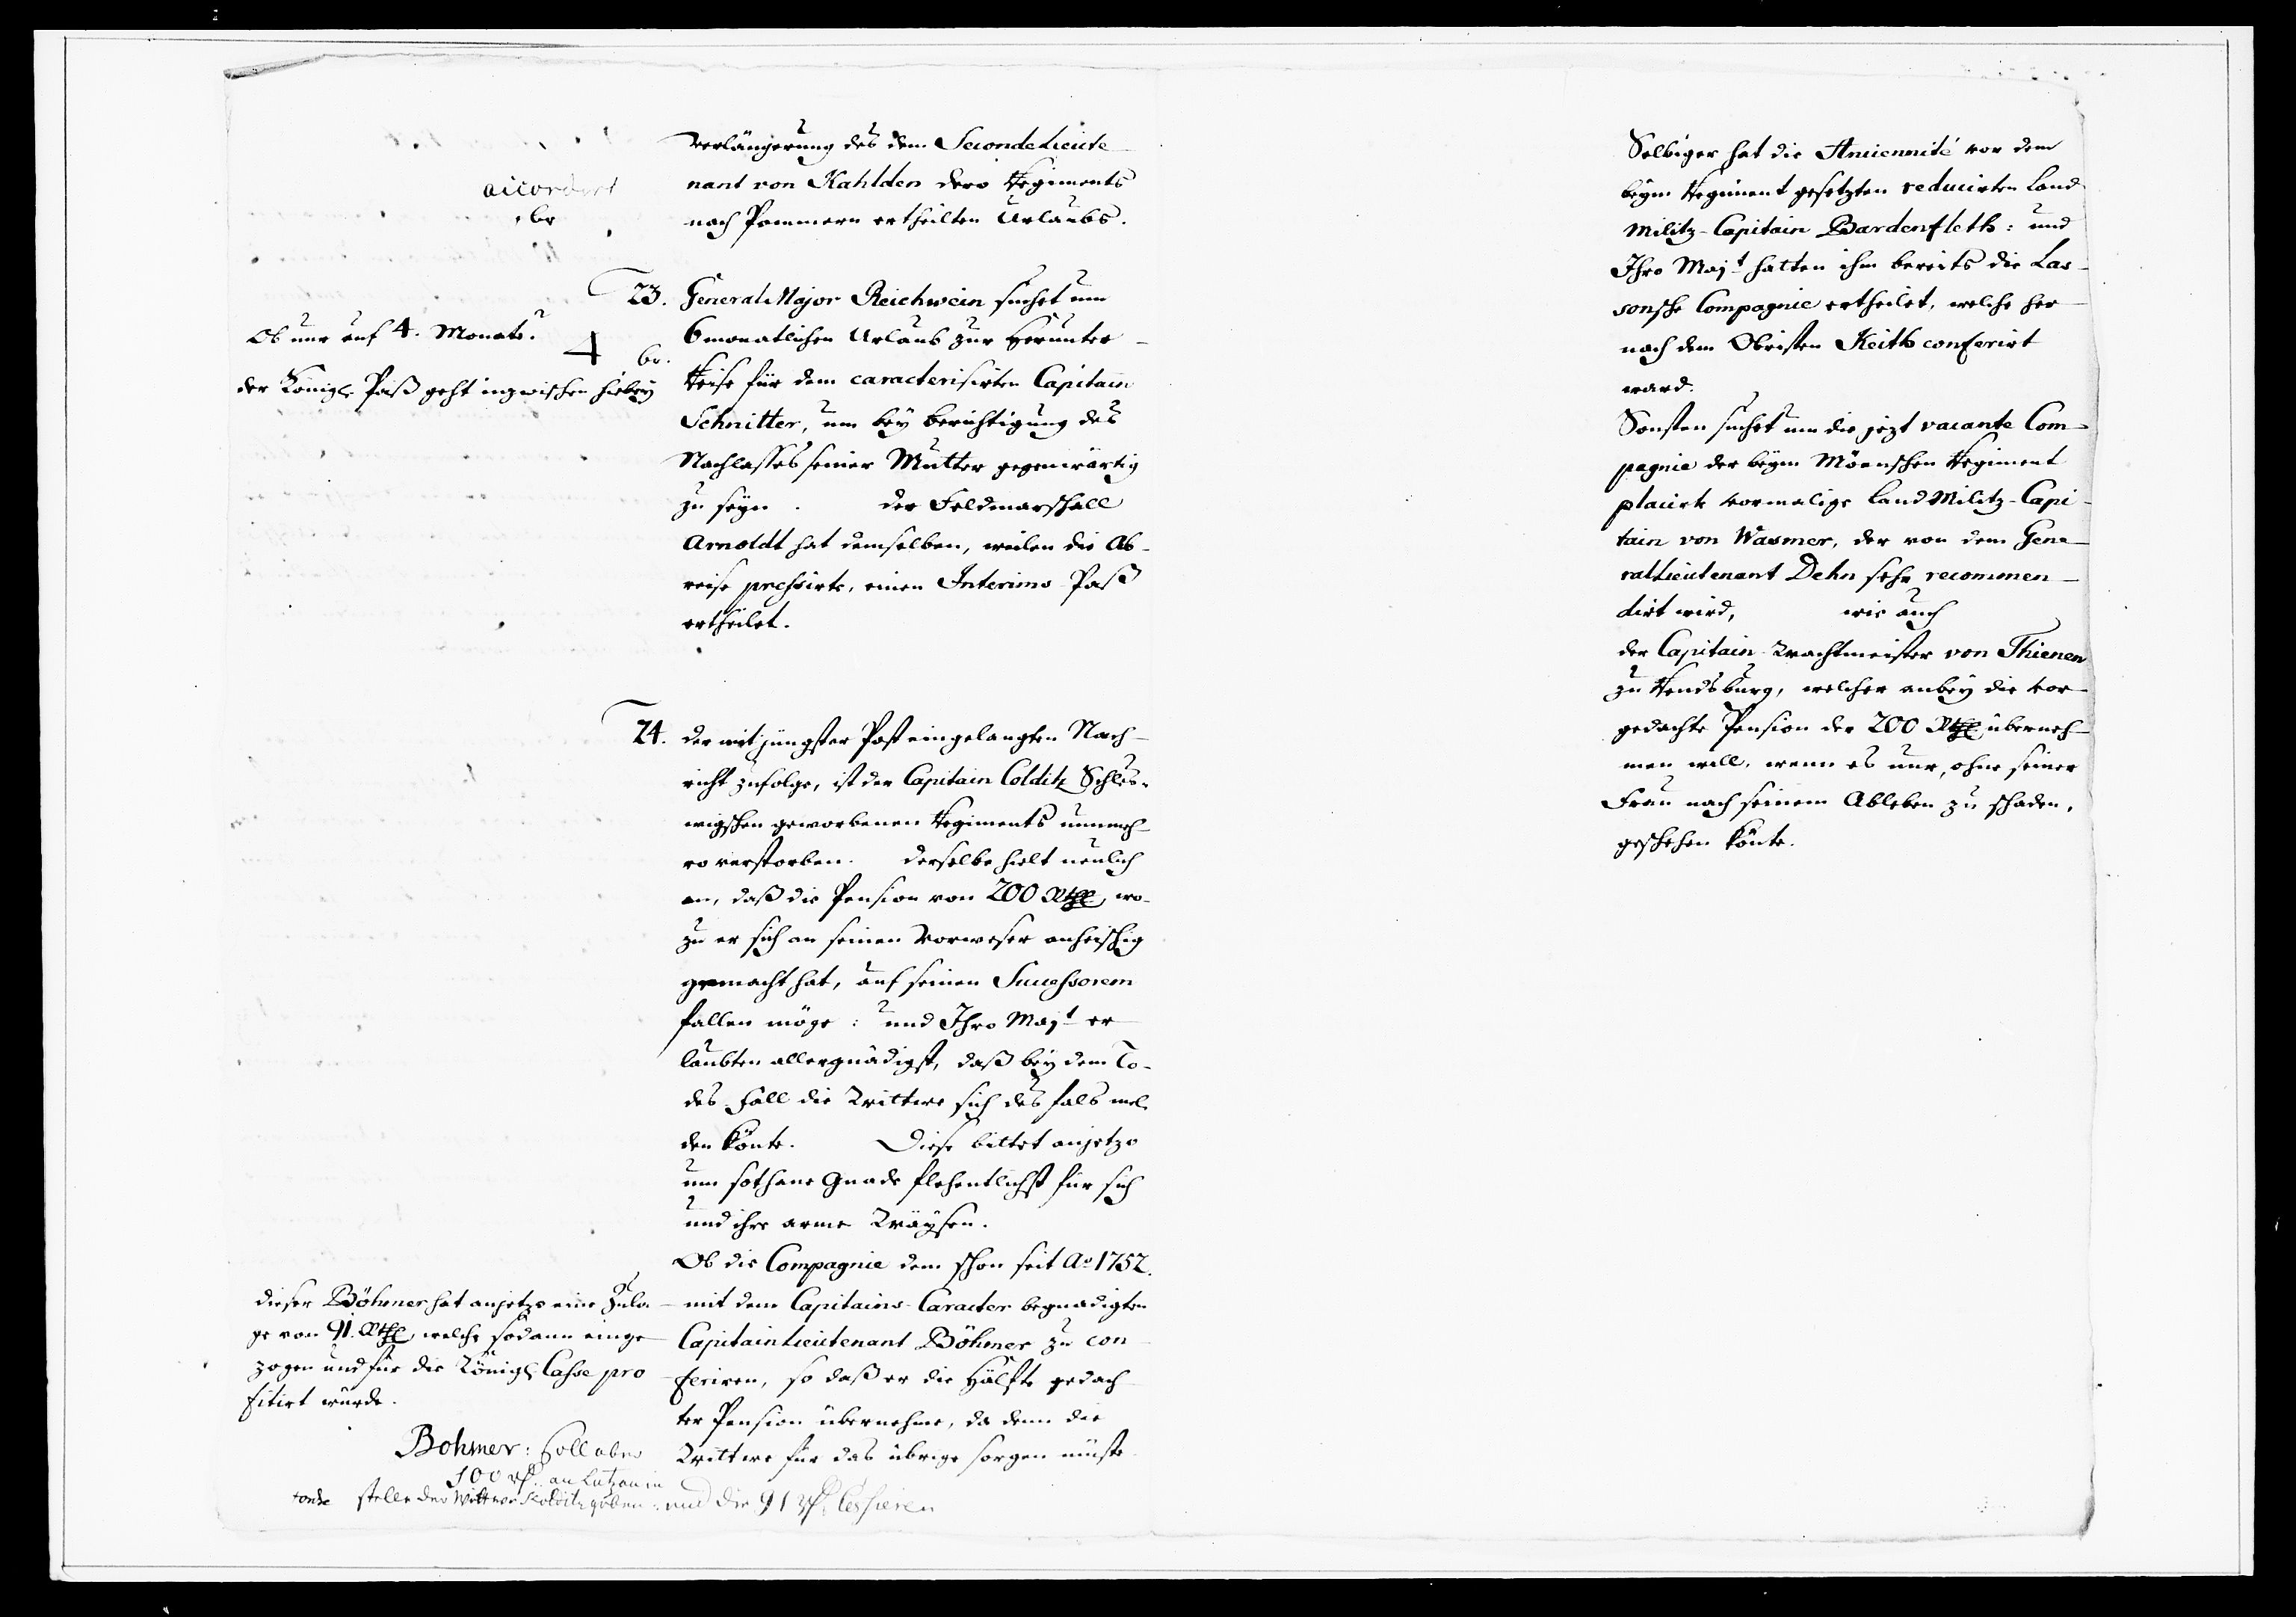 Verlängerung des dem SecondeLieute-
nant von Kahlden dero Regiments
nach Pommern ertheilten Urlaubs.
accordirt
br
23. GeneralMajor Reichwein suchet um
6monatlichen Urlaub zur Herunter-
Reise für dem caracterisirten Capitain
Schnitter, um bey berichtigung des
Nachlasses seiner Mutter gegenwärtig
zu seyn. der Feldmarschall
Arnoldt hat demselben, weilen die Ab-
reise pressirte, einen Interims-Paß
ertheilet.
Ob nur auf 4. Monate?
4 br.
der Königl. Paß geht inzwischen hiebey
24. der mit jüngster Post eingelangten Nach-
richt zufolge, ist der Capitain Colditz Schles-
wigschen geworbenen Regiments nunmeh-
ro verstorben. derselbe hielt neulich
an, daß die Pension von 200 Rthl, wo-
zu er sich an seinen Vorweser anheischig
gemacht hat, auf seinen Successorem
fallen möge: und Ihro Majt er-
laubten allergnädigst, daß bey dem To-
des-Fall die Wittwe sich desfals mel-
den könte. Diese bittet anjetzo
um sothane Gnade flehentlichst für sich
und ihre arme Wäysen.
Ob die Compagnie dem schon seit Ao 1752.
mit dem Capitains-Caracter begnadigten
CapitainLieutenant Böhmer zu con-
feriren, so daß er die Hälfte gedach-
ter Pension übernehme, da denn die
Wittwe für das übrige sorgen müste
dieser Böhmer hat anjetzo eine Zula-
ge von 91. Rthl, welche sodann einge-
zogen und für die Königl. Casse pro-
fitirt würde.
Bohmer: soll aber
100 rthl. an Lutzau in
stelle der Wittwe Kolditz geben. und die 91 rthl. Cessieren
Selbiger hat die Anciennité vor dem
beym Regiment gesetzten reducirten Land-
Militz-Capitain Bardenfleth: und
Ihro Majt hatten ihm bereits die Las-
sonsche Compagnie ertheilet, welche her-
nach dem Obristen Keith conferirt
ward.
Sonsten suchet um die jezt vacante Com-
pagnie der beym Möenschen Regiment
placirte vormalige LandMilitz-Capi-
tain von Wasmer, der von dem Gene-
ralLieutenant Dehn sehr recommen-
dirt wird, wie auch
der Capitain-Wachtmeister von Thienen
zu Rendsburg, welcher anbey die vor-
gedachte Pension der 200 Rthl überneh-
men will, wenn es nur, ohne seiner
Frau nach seinem Ableben zu schaden,
geschehen könte.